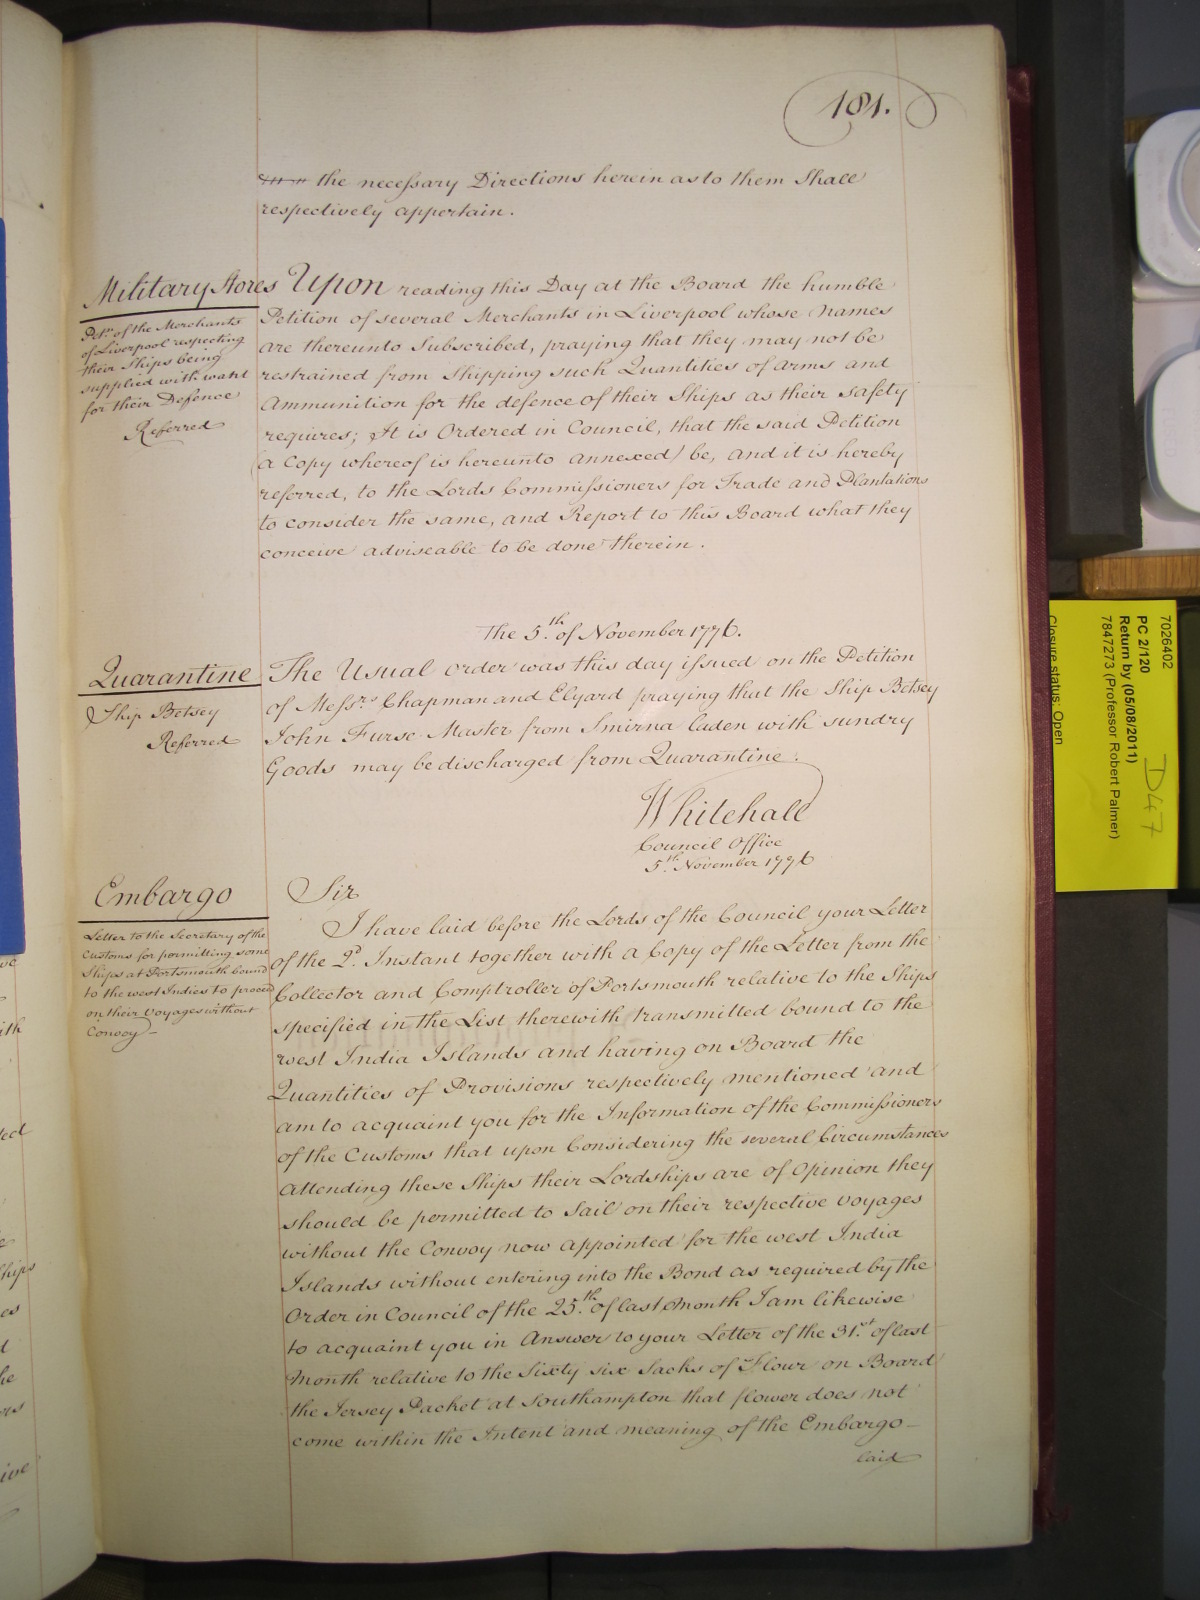 181.
the necessary Directions herein as to them Shall
respectively appertain.
Military Stores
Petn. of the Merchants
of Liverpool respecting
their Ships being
supplied with want
for their Defence
Referred
Upon reading this Day at the Board the humble
Petition of several Merchants in Liverpool whose Names
are thereunto Subscribed, praying that they may not be
restrained from Shipping such Quantities of Arms and
Ammunition for the defence of their Ships as their Safety
requires; It is Ordered in Council, that the said Petition
(a Copy whereof is hereunto annexed) be, and it is hereby
referred, to the Lords Commissioners for Trade and Plantations
to consider the same, and Report to this Board what they
conceive adviseable to be done therein.
The 5.th of November 1776.
Quarantine
Ship Betsey
Referred
The Usual order was this day issued on the Petition
of Messrs. Chapman and Elyard praying that the Ship Betsey
John Furse Master from Smirna laden with sundry
Goods may be discharged from Quarantine.
Whitehall
Council Office
5th. November 1776
Embargo
Letter to the Secretary of the
Customs for permitting some
Ships at Portsmouth bound
to the west Indies to proceed
on their Voyages without
Convoy
Sir
I have laid before the Lords of the Council your Letter
of the 2d. Instant together with a Copy of the Letter from the
Collector and Comptroller of Portsmouth relative to the Ships
specified in the List therewith transmitted bound to the
west India Islands and having on Board the
Quantities of Provisions respectively mentioned and
am to acquaint you for the Information of the Commissioners
of the Customs that upon Considering the several Circumstances
attending these Ships their Lordships are of Opinion they
should be permitted to Sail on their respective Voyages
without the Convoy now appointed for the west India
Islands without entering into the Bond as required by the
Order in Council of the 25.th of last Month I am likewise
to acquaint you in Answer to your Letter of the 31.st of last
Month relative to the Sixty six Sacks of Flour on Board
the Jersey Packet at Southampton that flower does not
come within the Intent and meaning of the Embargo
laid
7026402
PC 2/120
Return by (05/08/2011)
7847273 (Professor Robert Palmer)
Closure status: Open
D47